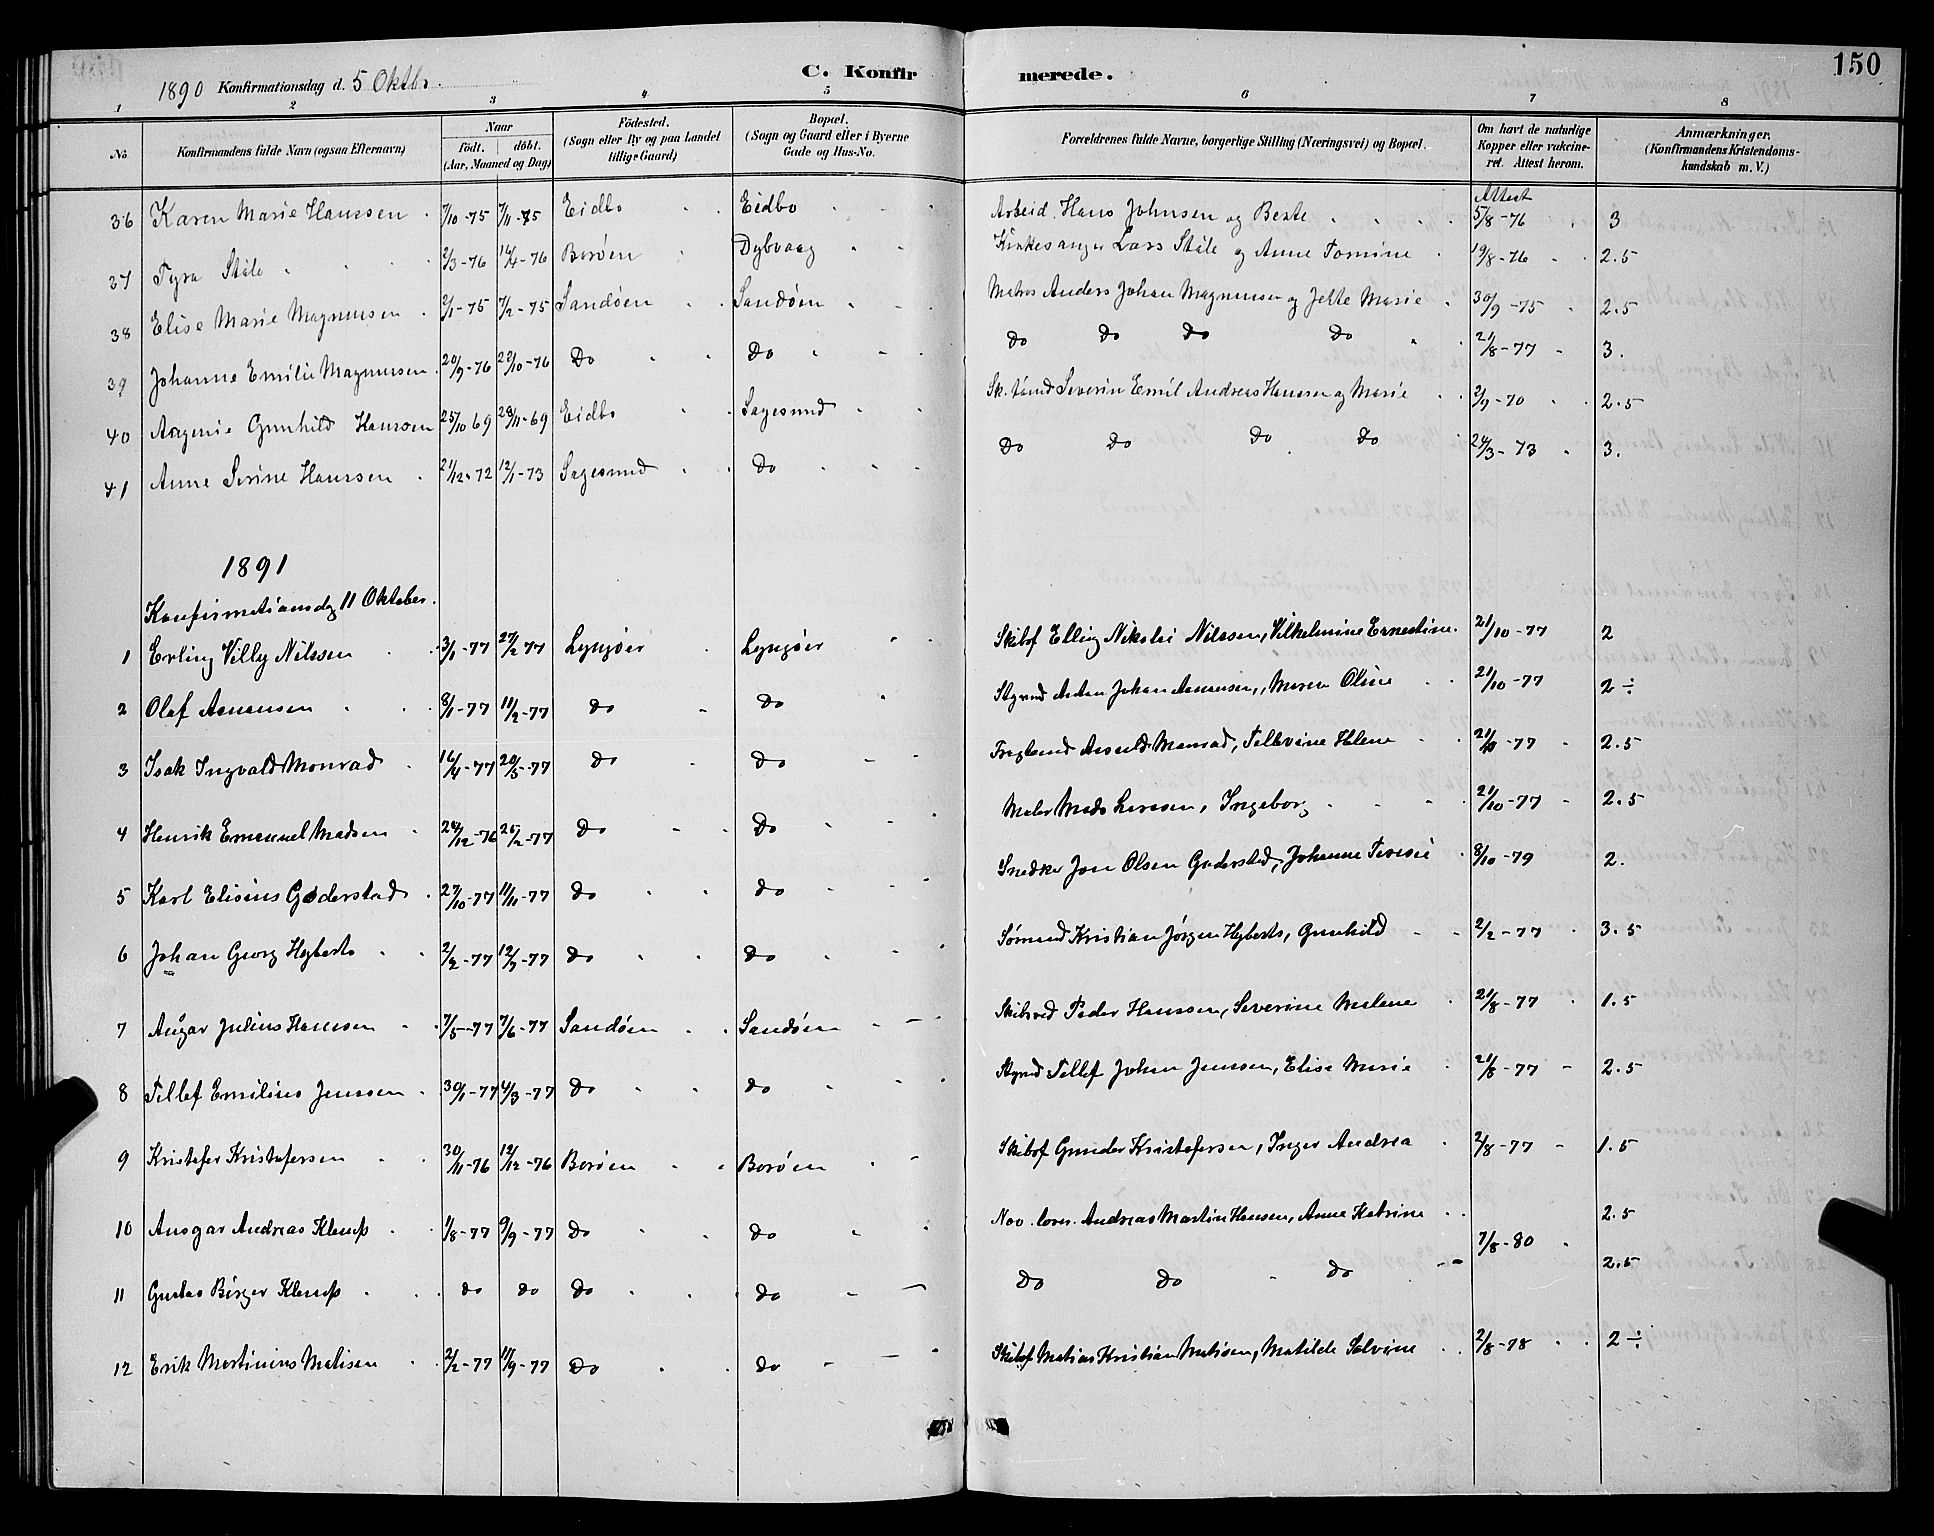 150
C. Konfirmerede.
1890 Konfirmationsdag d. 5 Oktbr.
1 2 3 4 5 6 7 8
No Konfirmandens fulde Navn (ogsaa Efternavn) Naar födt. döbt. (Aar, Maaned og Dag) Födested. (Sogn eller By og paa Landet tillige Gaard) Bopæl. (Sogn og Gaard eller i Byerne Gade og Hus-No. Forældrenes fulde Navne, borgerlige Stilling (Næringsvei) og Bopæl. Om havt de naturlige Kopper eller vakcineret. Attest herom. Anmærkninger. (Konfirmandens Kristendomskundskab m. V.)
Attest
36 Karen Marie Hanssen 7/10-75 7/11-75 Eidbo Eidbo Arbeid. Hans Johnsen og Berte 5/8-76 3
37 Tyra Ståle 2/3-76 14/4-76 Borøen Dybvaag Kirkesanger Lars Ståle og Anne Tomine 19/8-76 2.5
38 Elise Marie Magnussen 2/1-75 7/2-75 Sandøen Sandøen Matros Anders Johan Magnussen og Jette Marie 30/9-75 2.5
39 Johanne Emilie Magnussen 20/9-76 22/10-76 Do Do Do Do Do Do 21/8-77 3.
40 Aagenie Gunhild Hanssen 25/10 69 28/11-69 Eidbo Sagesund Sk.tømd Severin Emil Andreas Hanssen og Marie 2/9-70 2.5
41 Anne Serine Hanssen 21/12-72 12/1-73 Sagesund Do Do Do Do Do 24/3-73 3.
1891
Konfirmationsdg 11 Oktober.
1 Erling Villy Nilssen 3/1-77 27/2 77 Lyngøer Lyngøer Skibsf Elling Nikolai Nilssen, Vilhelmine Ernestine 21/10-77 2
2 Olaf Aanonsen 8/1-77 11/2-77 Do Do Stymd Anton Johan Aanonsen, Maren Oline 21/10-77 2 ÷
3 Isak Ingvald Monrad 16/4-77 20/5-77 Do Do Monrad, Tellevine Helene 21/10-77 2.5
4 Henrik Emanuel Madsen 24/12-76 25/2-77 Do Do Maler Mads Larssen, Ingeborg 21/10-77 2.5
5 Karl Elisius Goderstad 27/10-77 11/11-77 Do Do Snedker Jon Olsen Goderstad, Johanne Teresie 8/10-79 2.
6 Johan Georg Hyberts 2/2-77 12/7-77 Do Do Sømand Kristian Jørgen Hyberts, Gunhild 2/2-77 3.5
7 Ansgar Julius Hanssen 7/5-77 7/6-77 Sandøen Sandøen Peder Hanssen, Severine Malene 21/8-77 1.5
8 Tellef Emilius Jenssen 30/1-77 4/3-77 Do Do Stymd Tellef Johan Jenssen, Elise Marie 21/8-77 2.5
9 Kristofer Kristofersen 30/11-76 12/12-76 Borøen Borøen Skibsf Gunder Kristofersen, Inger Andrea 2/8-77 1.5
10 Ansgar Andreas Klemp 1/8-77 9/9-77 Do Do Andreas Martin Hansen, Anne Katrine 7/8-80 2.5
11 Gustav Birger Klemp do do Do Do Do Do Do 2.5
12 Erik Martinius Matisen 2/2-77 11/9-77 Do Do Skibsf Matias Kristian Matisen, Matilde Salvine 2/8-78 2 ÷